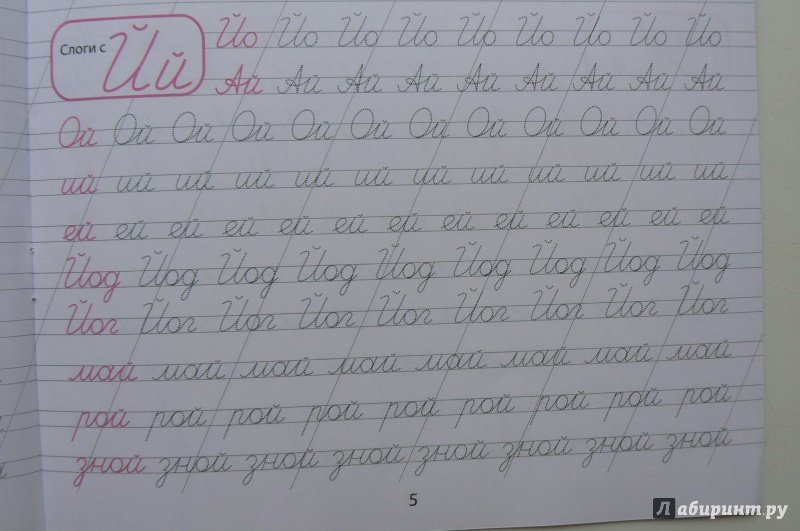 Слоги с Йй
Йо Йо Йо Йо Йо Йо Йо Йо Йо
Ай Ай Ай Ай Ай Ай Ай Ай Ай
Ой Ой Ой Ой Ой Ой Ой Ой Ой Ой Ой Ой
ий ий ий ий ий ий ий ий ий ий ий ий
ей ей ей ей ей ей ей ей ей ей ей ей ей
Йод Йод Йод Йод Йод Йод Йод Йод Йод
Йог Йог Йог Йог Йог Йог Йог Йог Йог
май май май май май май май май
рой рой рой рой рой рой рой рой рой
зной зной зной зной зной зной зной зной
5
Лабиринт.ру